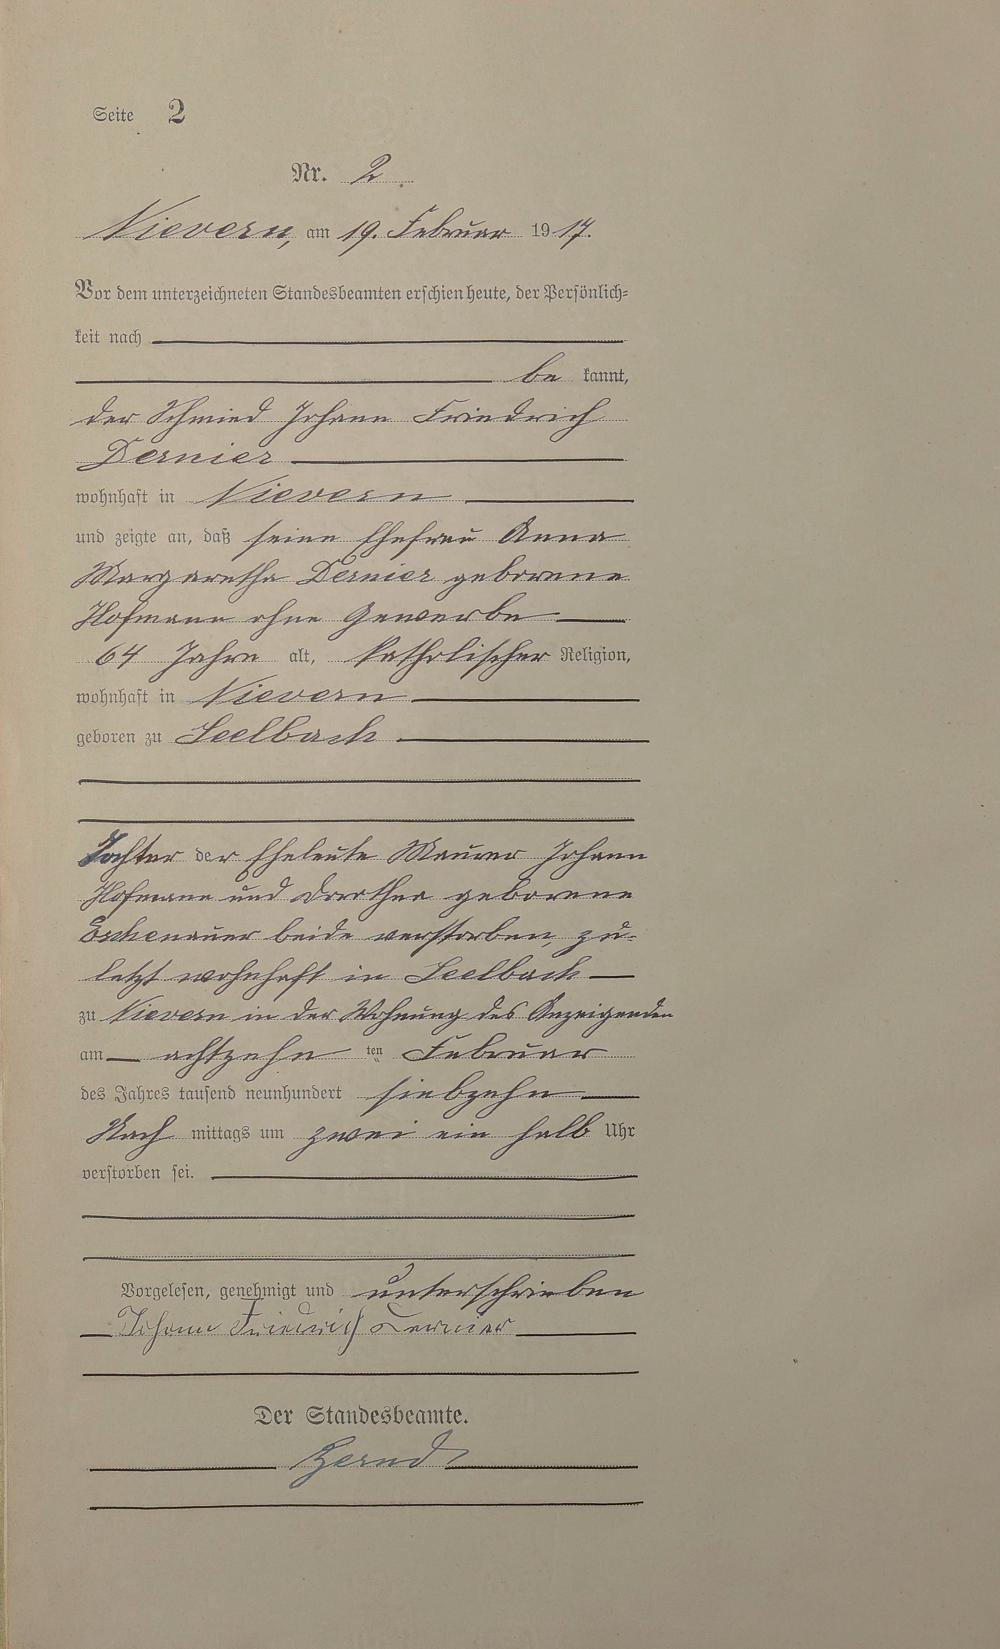 Seite 2
Nr. 2
Nievern, am 19. Februar 1917.
Vor dem unterzeichneten Standesbeamten erschien heute, der Persönlich-
keit nach
be kannt,
der Schmied Johann Friedrich
Dernier
wohnhaft in Nievern
und zeigte an, daß seine Ehefrau Anna
Margaretha Dernier geborene
Hofmann ohne Gewerbe
64 Jahre alt, katholischer Religion,
wohnhaft in Nievern
geboren zu Seelbach
Tochter der Eheleute Maurer Johann
Hofmann und Dorothea geborene
Eschenauer beide verstorben, zu-
letzt wohnhaft in Seelbach
zu Nievern in der Wohnung des Anzeigenden
am achtzehn ten Februar
des Jahres tausend neunhundert siebzehn
Nach mittags um zwei ein halb Uhr
verstorben sei.
Vorgelesen, genehmigt und unterschrieben
Johann Friedrich Dernier
Der Standesbeamte.